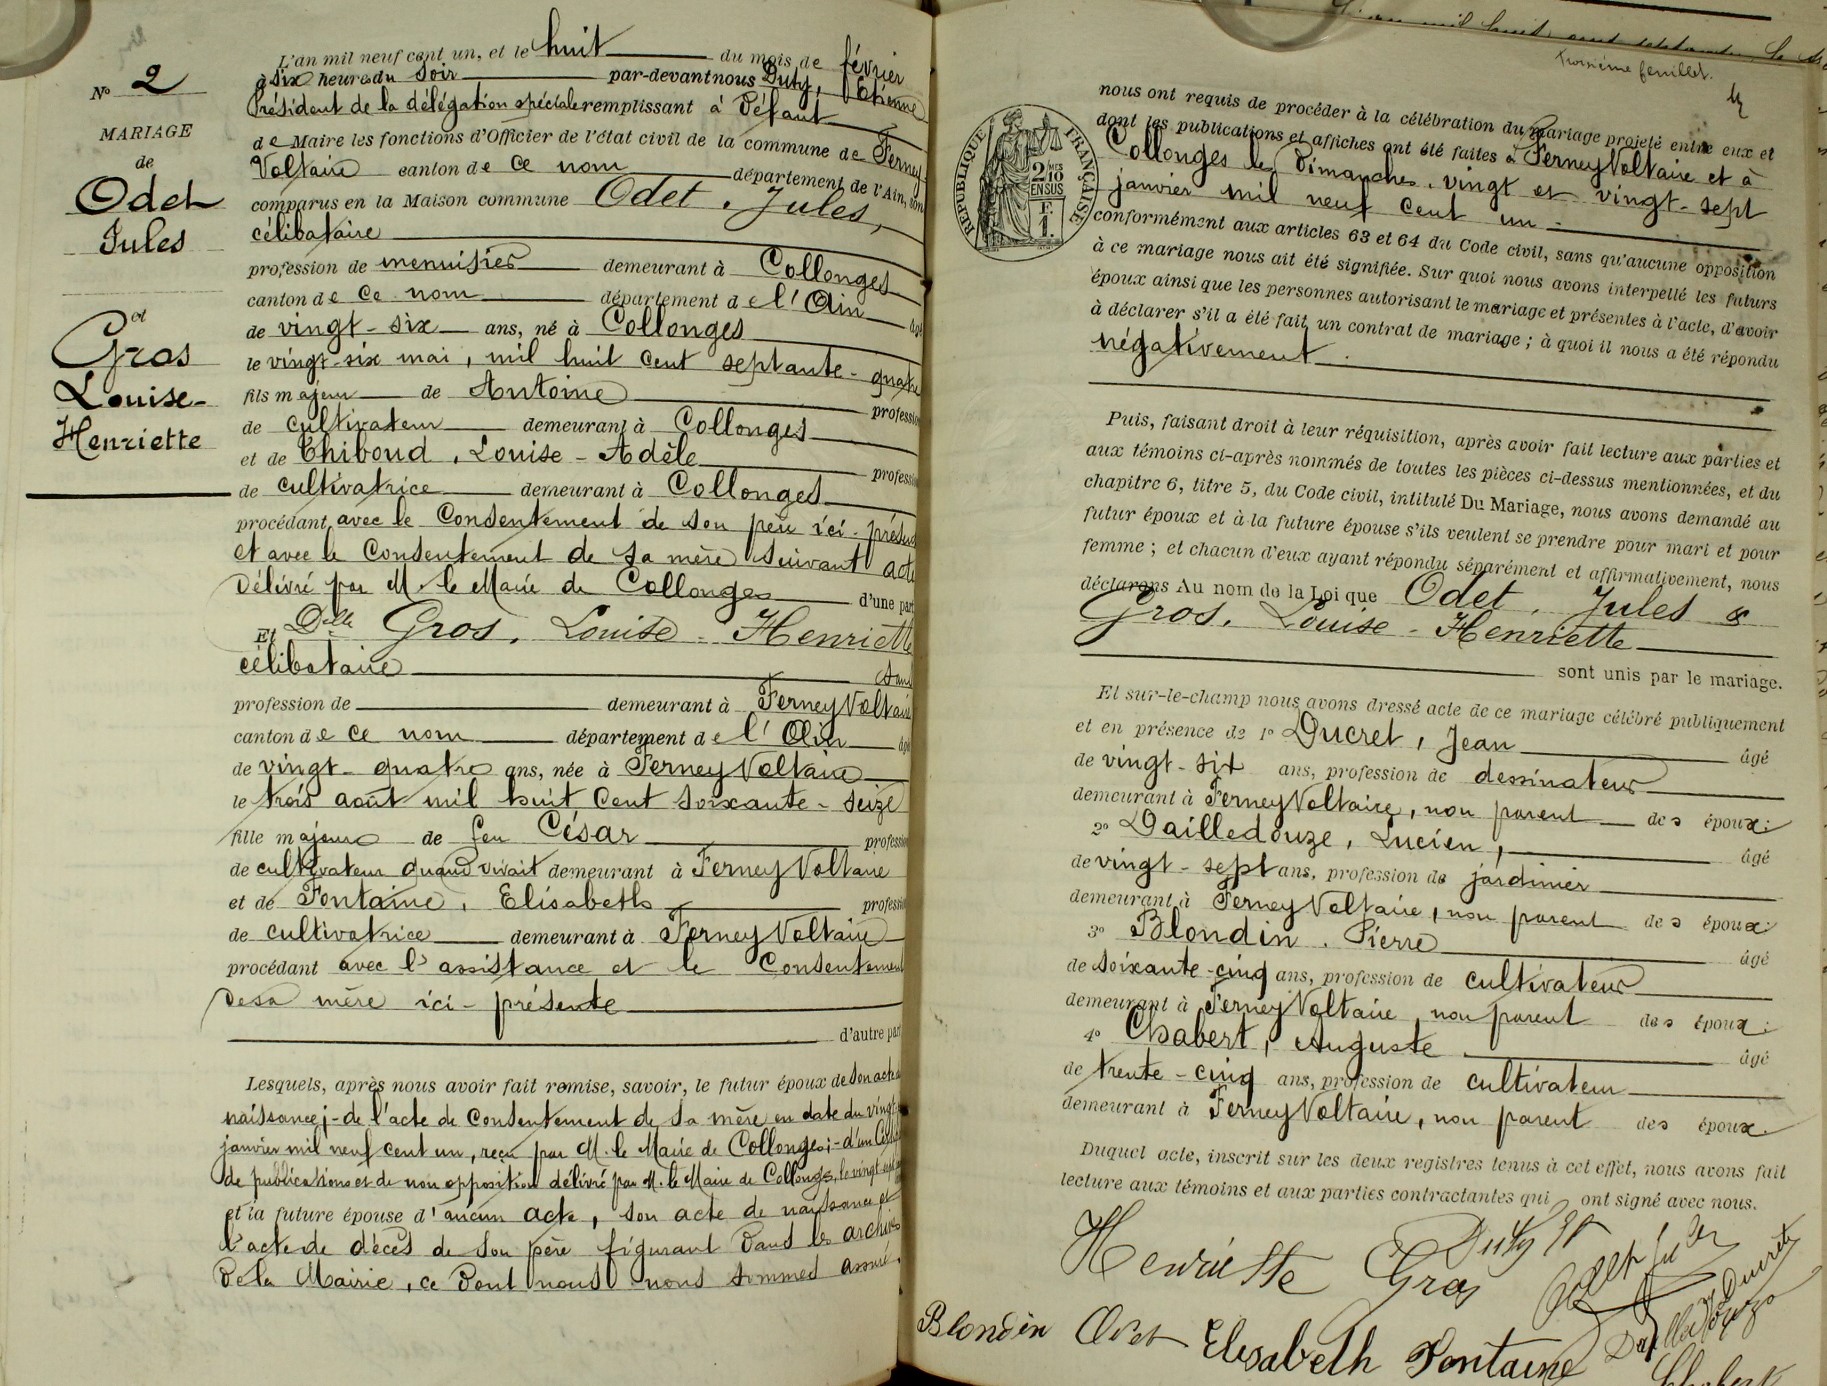 N° 2
MARIAGE
de
Odet
Jules
et
Gros
Louise-
Henriette
L'an mil neuf cent un, et le huit du mois de février
à six heures du soir par-devant nous Duty, Etienne
Président de la délégation spéciale remplissant à défaut
de Maire les fonctions d'Officier de l'état civil de la commune de Ferney-
Voltaire canton de ce nom département de l'Ain, sont
comparus en la Maison commune Odet, Jules,
célibataire
profession de menuisier demeurant à Collonges
canton de ce nom département de l'Ain âgé
de vingt-six ans, né à Collonges
le vingt-six mai, mil huit cent septante-quatre
fils majeur de Antoine profession
de cultivateur demeurant à Collonges
et de Thiboud, Louise-Adèle profession
de cultivatrice demeurant à Collonges
procédant avec le Consentement de son père ici-présent
et avec le Consentement de sa mère suivant acte
délivré par M. le Maire de Collonges d'une part
Et Delle Gros, Louise-Henriette
célibataire sans
profession de demeurant à Ferney Voltaire
canton de ce nom département de l'Ain âgé
de vingt-quatre ans, née à Ferney Voltaire
le trois août mil huit cent soixante-seize
fille majeure de feu César profession
de cultivateur quand vivait demeurant à Ferney Voltaire
et de Fontaine, Elisabeth profession
de cultivatrice demeurant à Ferney Voltaire
procédant avec l'assistance et le Consentement
de sa mère ici-présente
d'autre part
Lesquels, après nous avoir fait remise, savoir, le futur époux de son acte de
naissance;-de l'acte de Consentement de sa mère en date du vingt
janvier mil neuf cent un, reçu par M. le Maire de Collonges;-d'un
de publications et de non opposition délivré par M. le Maire de Collonges, le vingt-
et la future épouse d'aucun acte, son acte de naissance et
l'acte de décès de son père figurant dans les archives
de la Mairie, ce dont nous nous sommes assuré,
Troisième feuillet.
RÉPUBLIQUE FRANÇAISE
2 MES
10
EN SUS
F.
1.
nous ont requis de procéder à la célébration du mariage projeté entre eux et
dont les publications et affiches ont été faites à Ferney Voltaire et à
Collonges les Dimanches, vingt et vingt-sept
janvier mil neuf cent un.
conformément aux articles 63 et 64 du Code civil, sans qu'aucune opposition
à ce mariage nous ait été signifiée. Sur quoi nous avons interpellé les futurs
époux ainsi que les personnes autorisant le mariage et présentes à l'acte, d'avoir
à déclarer s'il a été fait un contrat de mariage; à quoi il nous a été répondu
négativement.
Puis, faisant droit à leur réquisition, après avoir fait lecture aux parties et
aux témoins ci-après nommés de toutes les pièces ci-dessus mentionnées, et du
chapitre 6, titre 5, du Code civil, intitulé Du Mariage, nous avons demandé au
futur époux et à la future épouse s'ils veulent se prendre pour mari et pour
femme; et chacun d'eux ayant répondu séparément et affirmativement, nous
déclarons Au nom de la Loi que Odet, Jules &
Gros, Louise-Henriette
sont unis par le mariage.
Et sur-le-champ nous avons dressé acte de ce mariage célébré publiquement
et en présence de 1° Ducret, Jean âgé
de vingt-six ans, profession de dessinateur
demeurant à Ferney Voltaire, non parent des époux;
2° Dailledouze, Lucien, âgé
de vingt-sept ans, profession de jardinier
demeurant à Ferney Voltaire, non parent des époux;
3° Blondin, Pierre âgé
de soixante-cinq ans, profession de cultivateur
demeurant à Ferney Voltaire, non parent des époux;
4° Chabert, Auguste âgé
de trente-cinq ans, profession de cultivateur
demeurant à Ferney Voltaire, non parent des époux.
Duquel acte, inscrit sur les deux registres tenus à cet effet, nous avons fait
lecture aux témoins et aux parties contractantes qui ont signé avec nous.
Henriette Gros Duty Et
Odet Jules Ducret
Dailledouze
Blondin Odet Elisabeth Fontaine Chabert